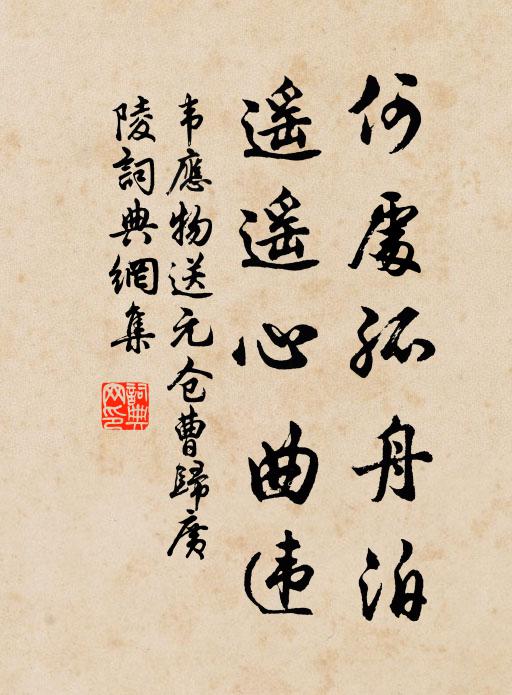 何處孤舟泊
遥遥心曲违
韦應物送元仓曹歸廣
陵詞典網集
詞典网印